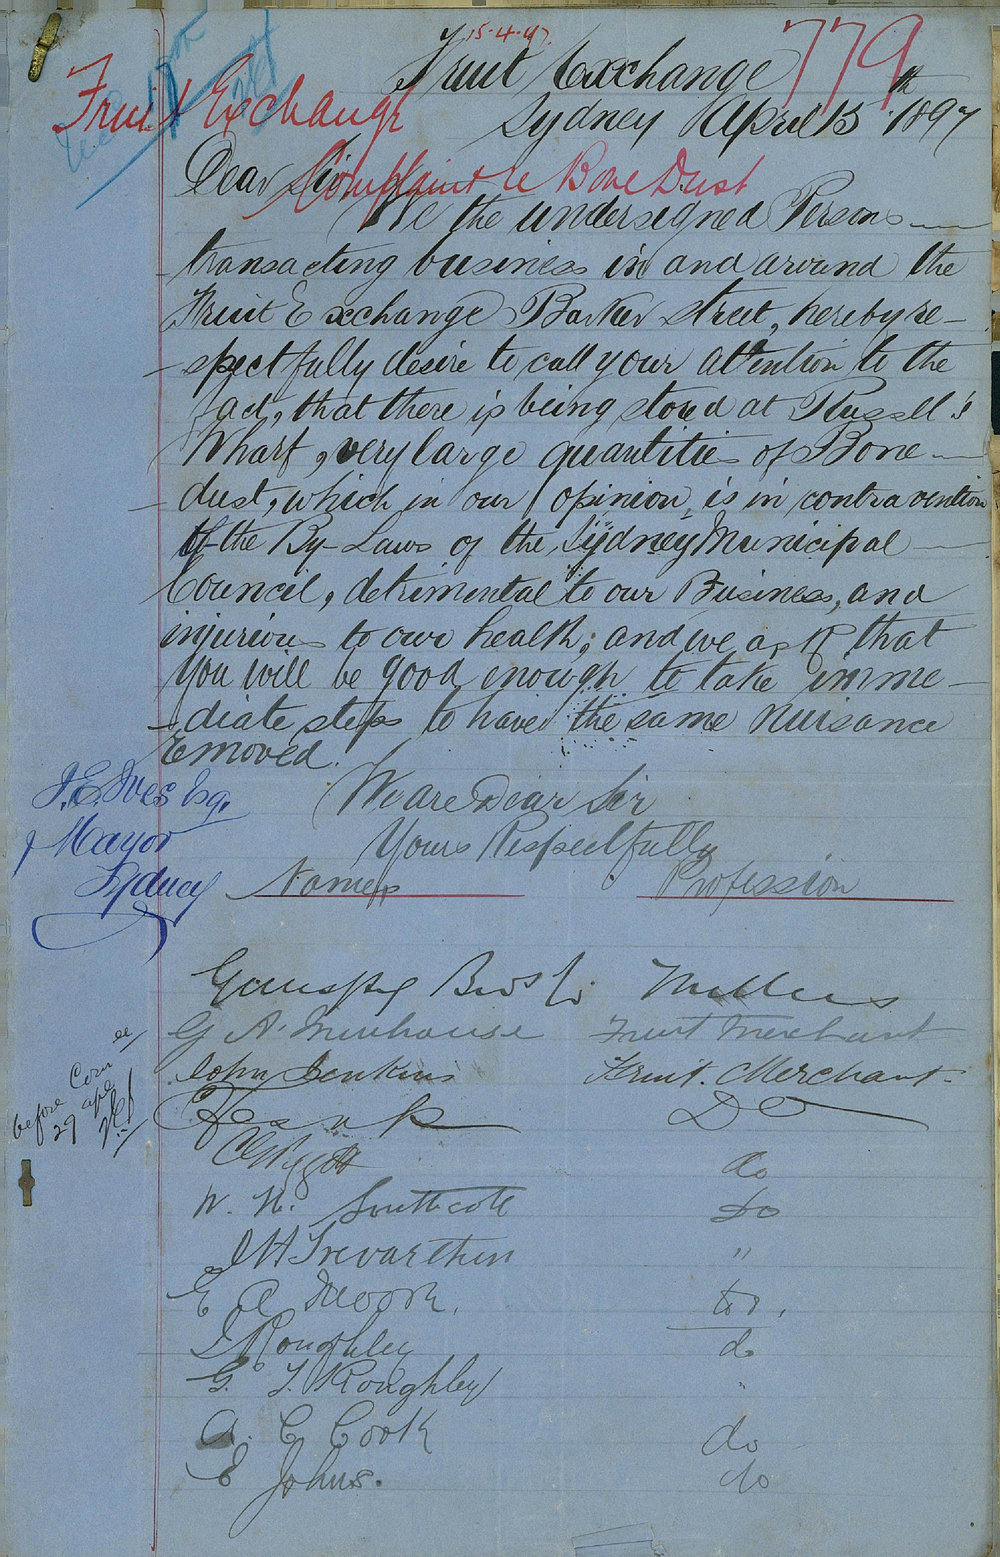 15.4.97.
779
Fruit Exchange
Fruit Exchange
Sydney April 13th 1897
Dear Sir
Complaint re Bone Dust
We the undersigned Persons
transacting business in and around the
Fruit Exchange Barker street, hereby re-
-spectfully desire to call your attention to the
fact, that there is being stored at Russell's
Wharf, very large quantities of Bone
-dust, which in our opinion, is in contravention
of the By-Laws of the Sydney Municipal
Council, detrimental to our Business, and
injurious to our health; and we ask that
you will be good enough to take imme-
-diate steps to have the same nuisance
removed.
J.E. Ives Esq.
Mayor
Sydney
We are Dear Sir
Yours Respectfully
Names Profession
Bros & Co Millers
G A. Fruit Merchant
John Jenkins Fruit. Merchant.
Do
do
W. H. Southcott Do
J H Trevarthen "
E A Moore. do.
J Roughley do
G. T. Roughley "
A. C Cook do
E Johns. do
before Com ee
29 apl